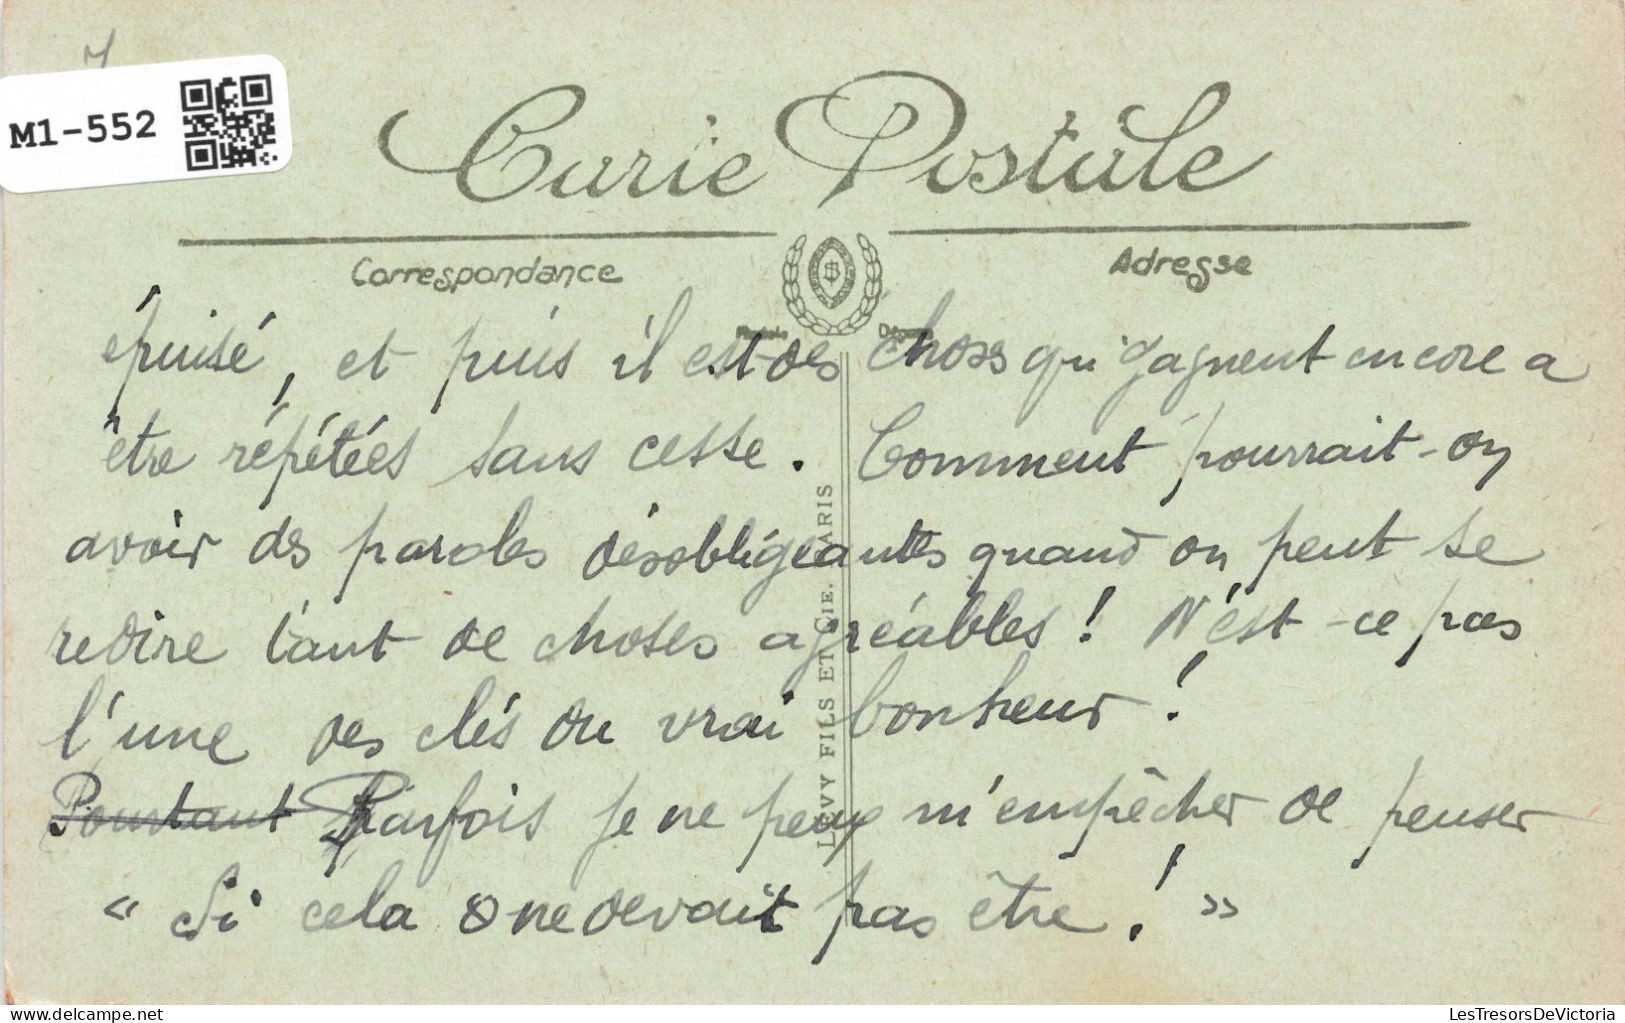 7
M1-552
Carte Postale
Correspondance
Adresse
épuisé, et puis il est des choses qui gagnent encore a
être répétées sans cesse. Comment pourrait-on
avoir des paroles désobligeantes quand on peut se
redire tant de choses agréables ! N'est-ce pas
l'une des clés du vrai bonheur !
Pourtant Parfois je ne peux m'empêcher de penser
« Si cela ne devait pas être ! »
LEVY FILS ET CIE. PARIS
delcampe.net
LesTresorsDeVictoria